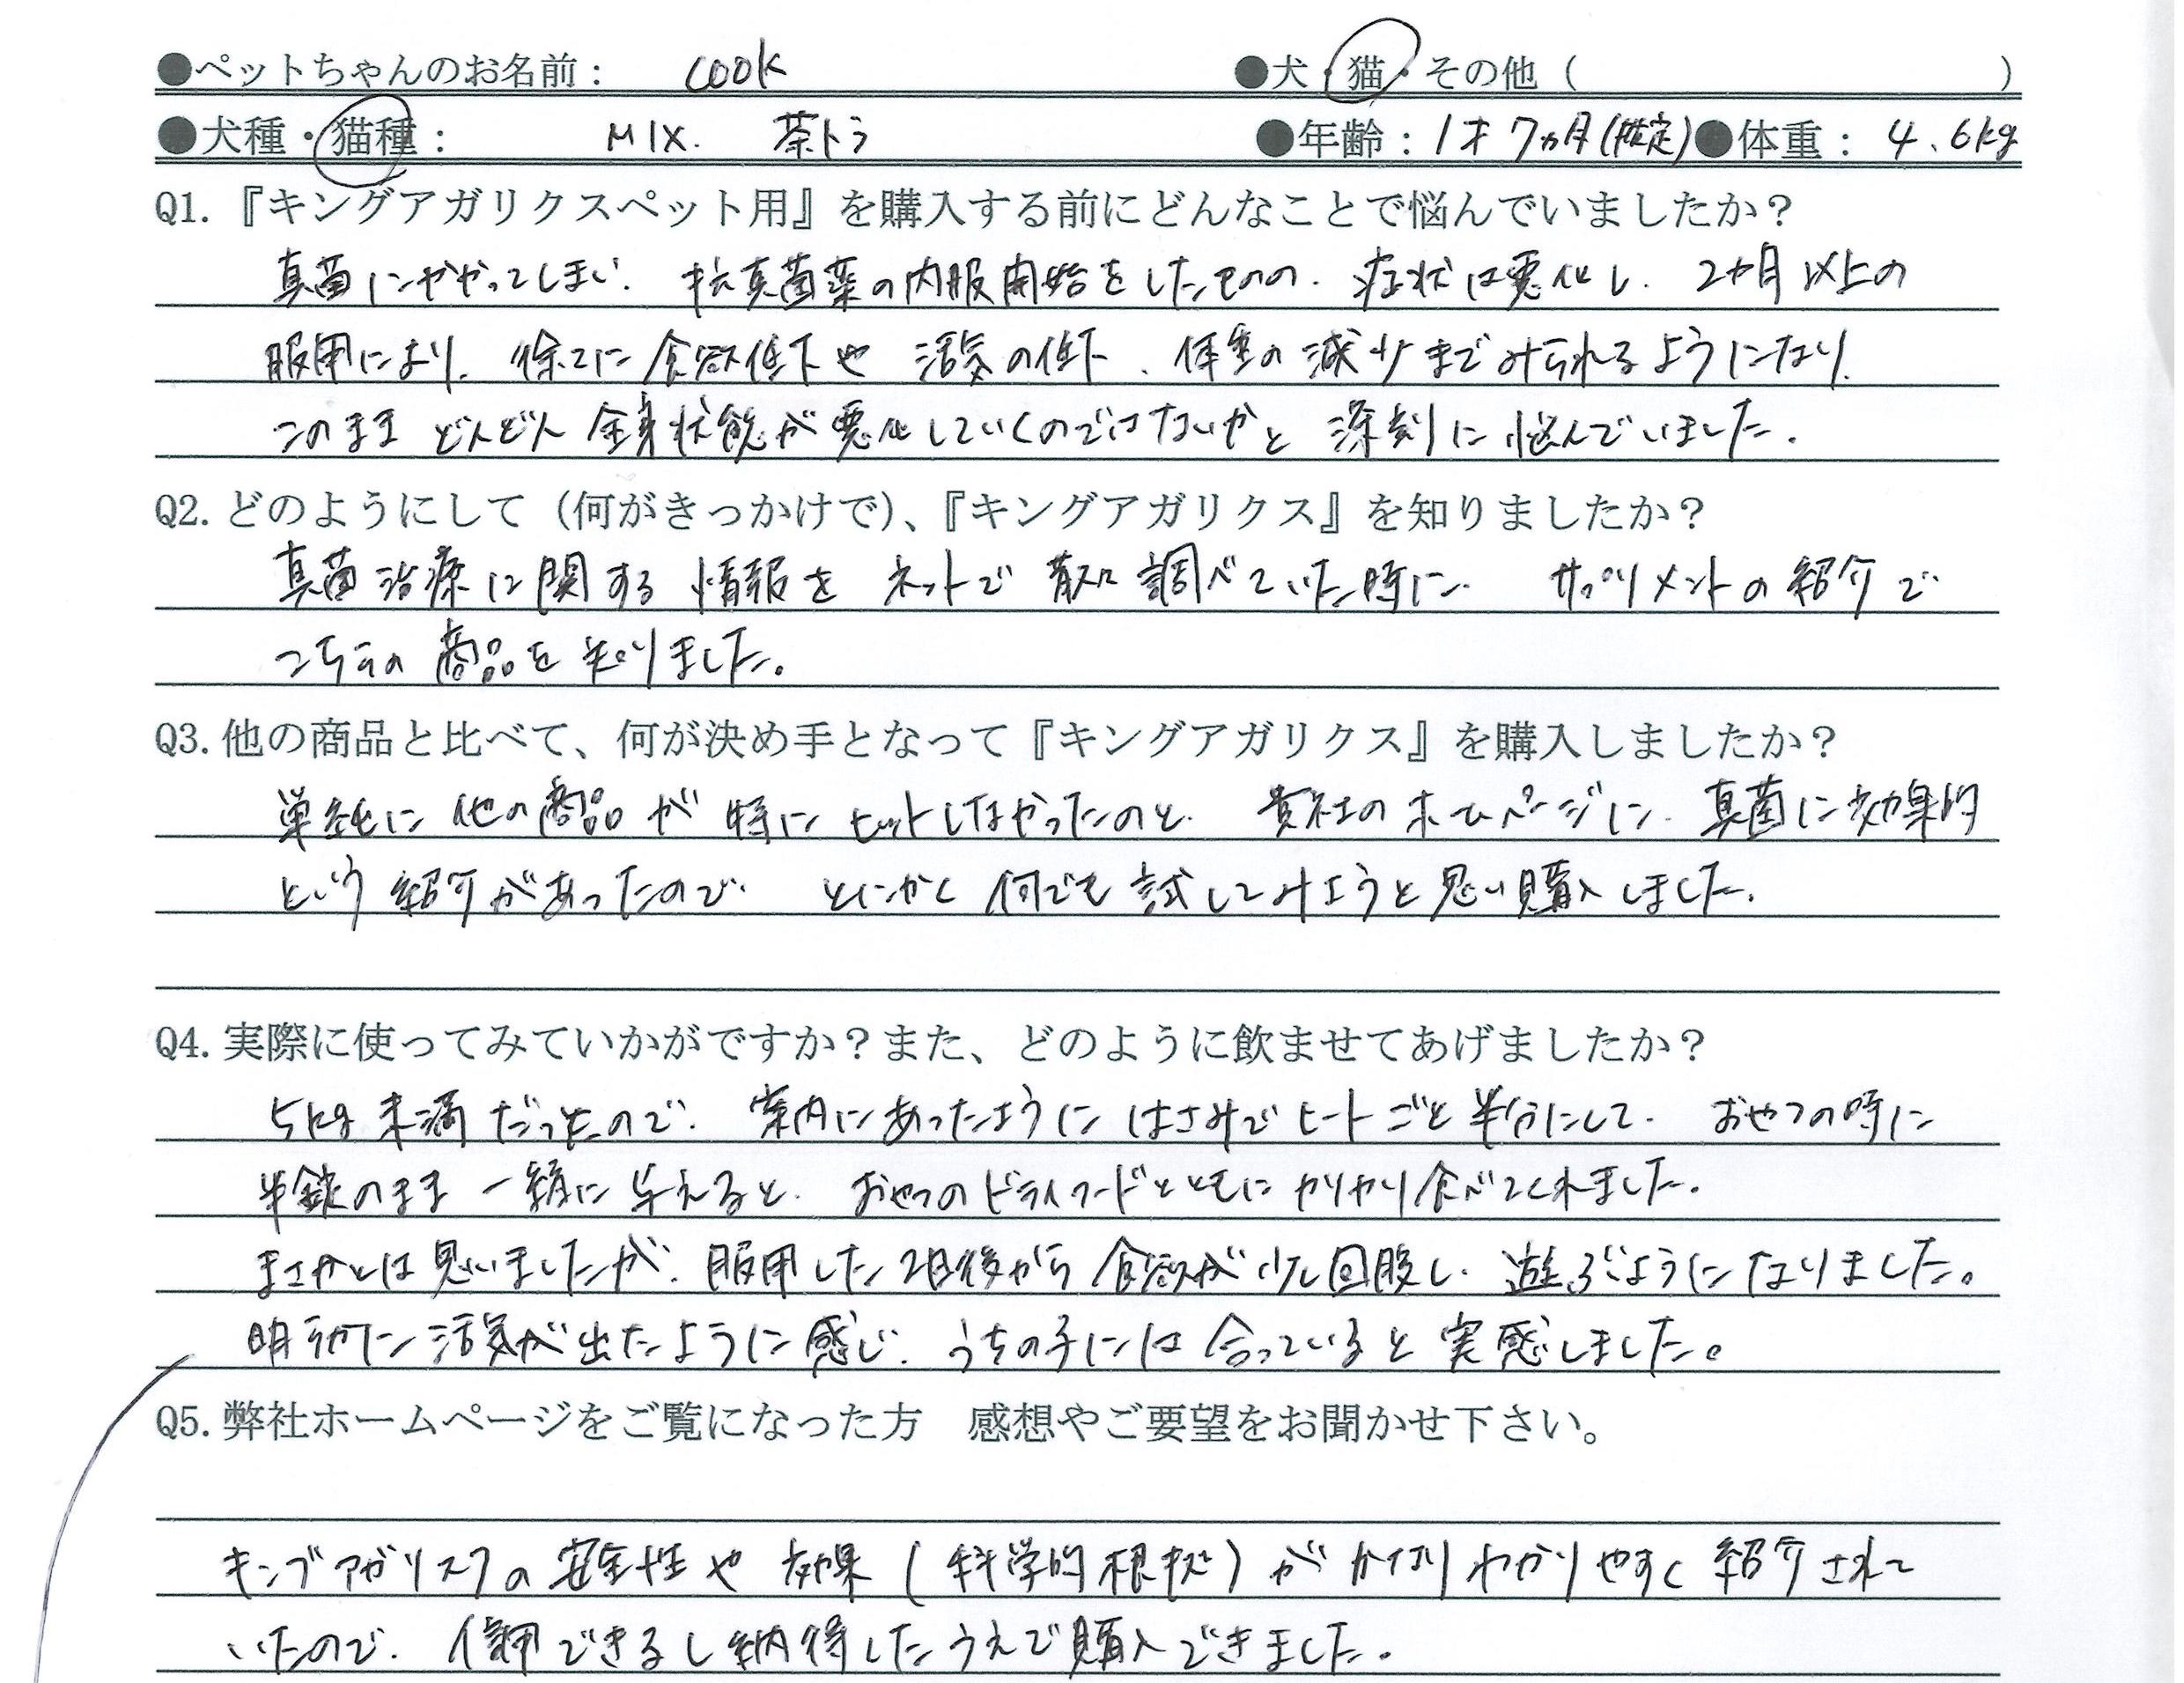 ●ペットちゃんのお名前： cook ●犬・猫・その他（ ）
●犬種・猫種： MIX. 茶トラ ●年齢：1才7ヵ月(推定)●体重：4.6kg
Q1.『キングアガリクスペット用』を購入する前にどんなことで悩んでいましたか？
真菌にかかってしまい、抗真菌薬の内服開始をしたものの、症状は悪化し、2ヶ月以上の
服用により、徐々に食欲低下や活気の低下、体重の減少までみられるようになり、
このままどんどん全身状態が悪化していくのではないかと深刻に悩んでいました。
Q2.どのようにして（何がきっかけで）、『キングアガリクス』を知りましたか？
真菌治療に関する情報をネットで散々調べていた時に、サプリメントの紹介で
こちらの商品を知りました。
Q3.他の商品と比べて、何が決め手となって『キングアガリクス』を購入しましたか？
単純に他の商品が特にヒットしなかったのと、貴社のホームページに、真菌に効果的
という紹介があったので、とにかく何でも試してみようと思い購入しました。
Q4.実際に使ってみていかがですか？また、どのように飲ませてあげましたか？
5kg未満だったので、案内にあったようにはさみでヒートごと半分にして、おやつの時に
半錠のまま一緒に与えると、おやつのドライフードとともにカリカリ食べてくれました。
まさかとは思いましたが、服用した2日後から食欲が少し回復し、遊ぶようになりました。
明らかに活気が出たように感じ、うちの子には合っていると実感しました。
Q5.弊社ホームページをご覧になった方　感想やご要望をお聞かせ下さい。
キングアガリスクの安全性や効果(科学的根拠)がかなりわかりやすく紹介されて
いたので、信用できるし納得したうえで購入できました。